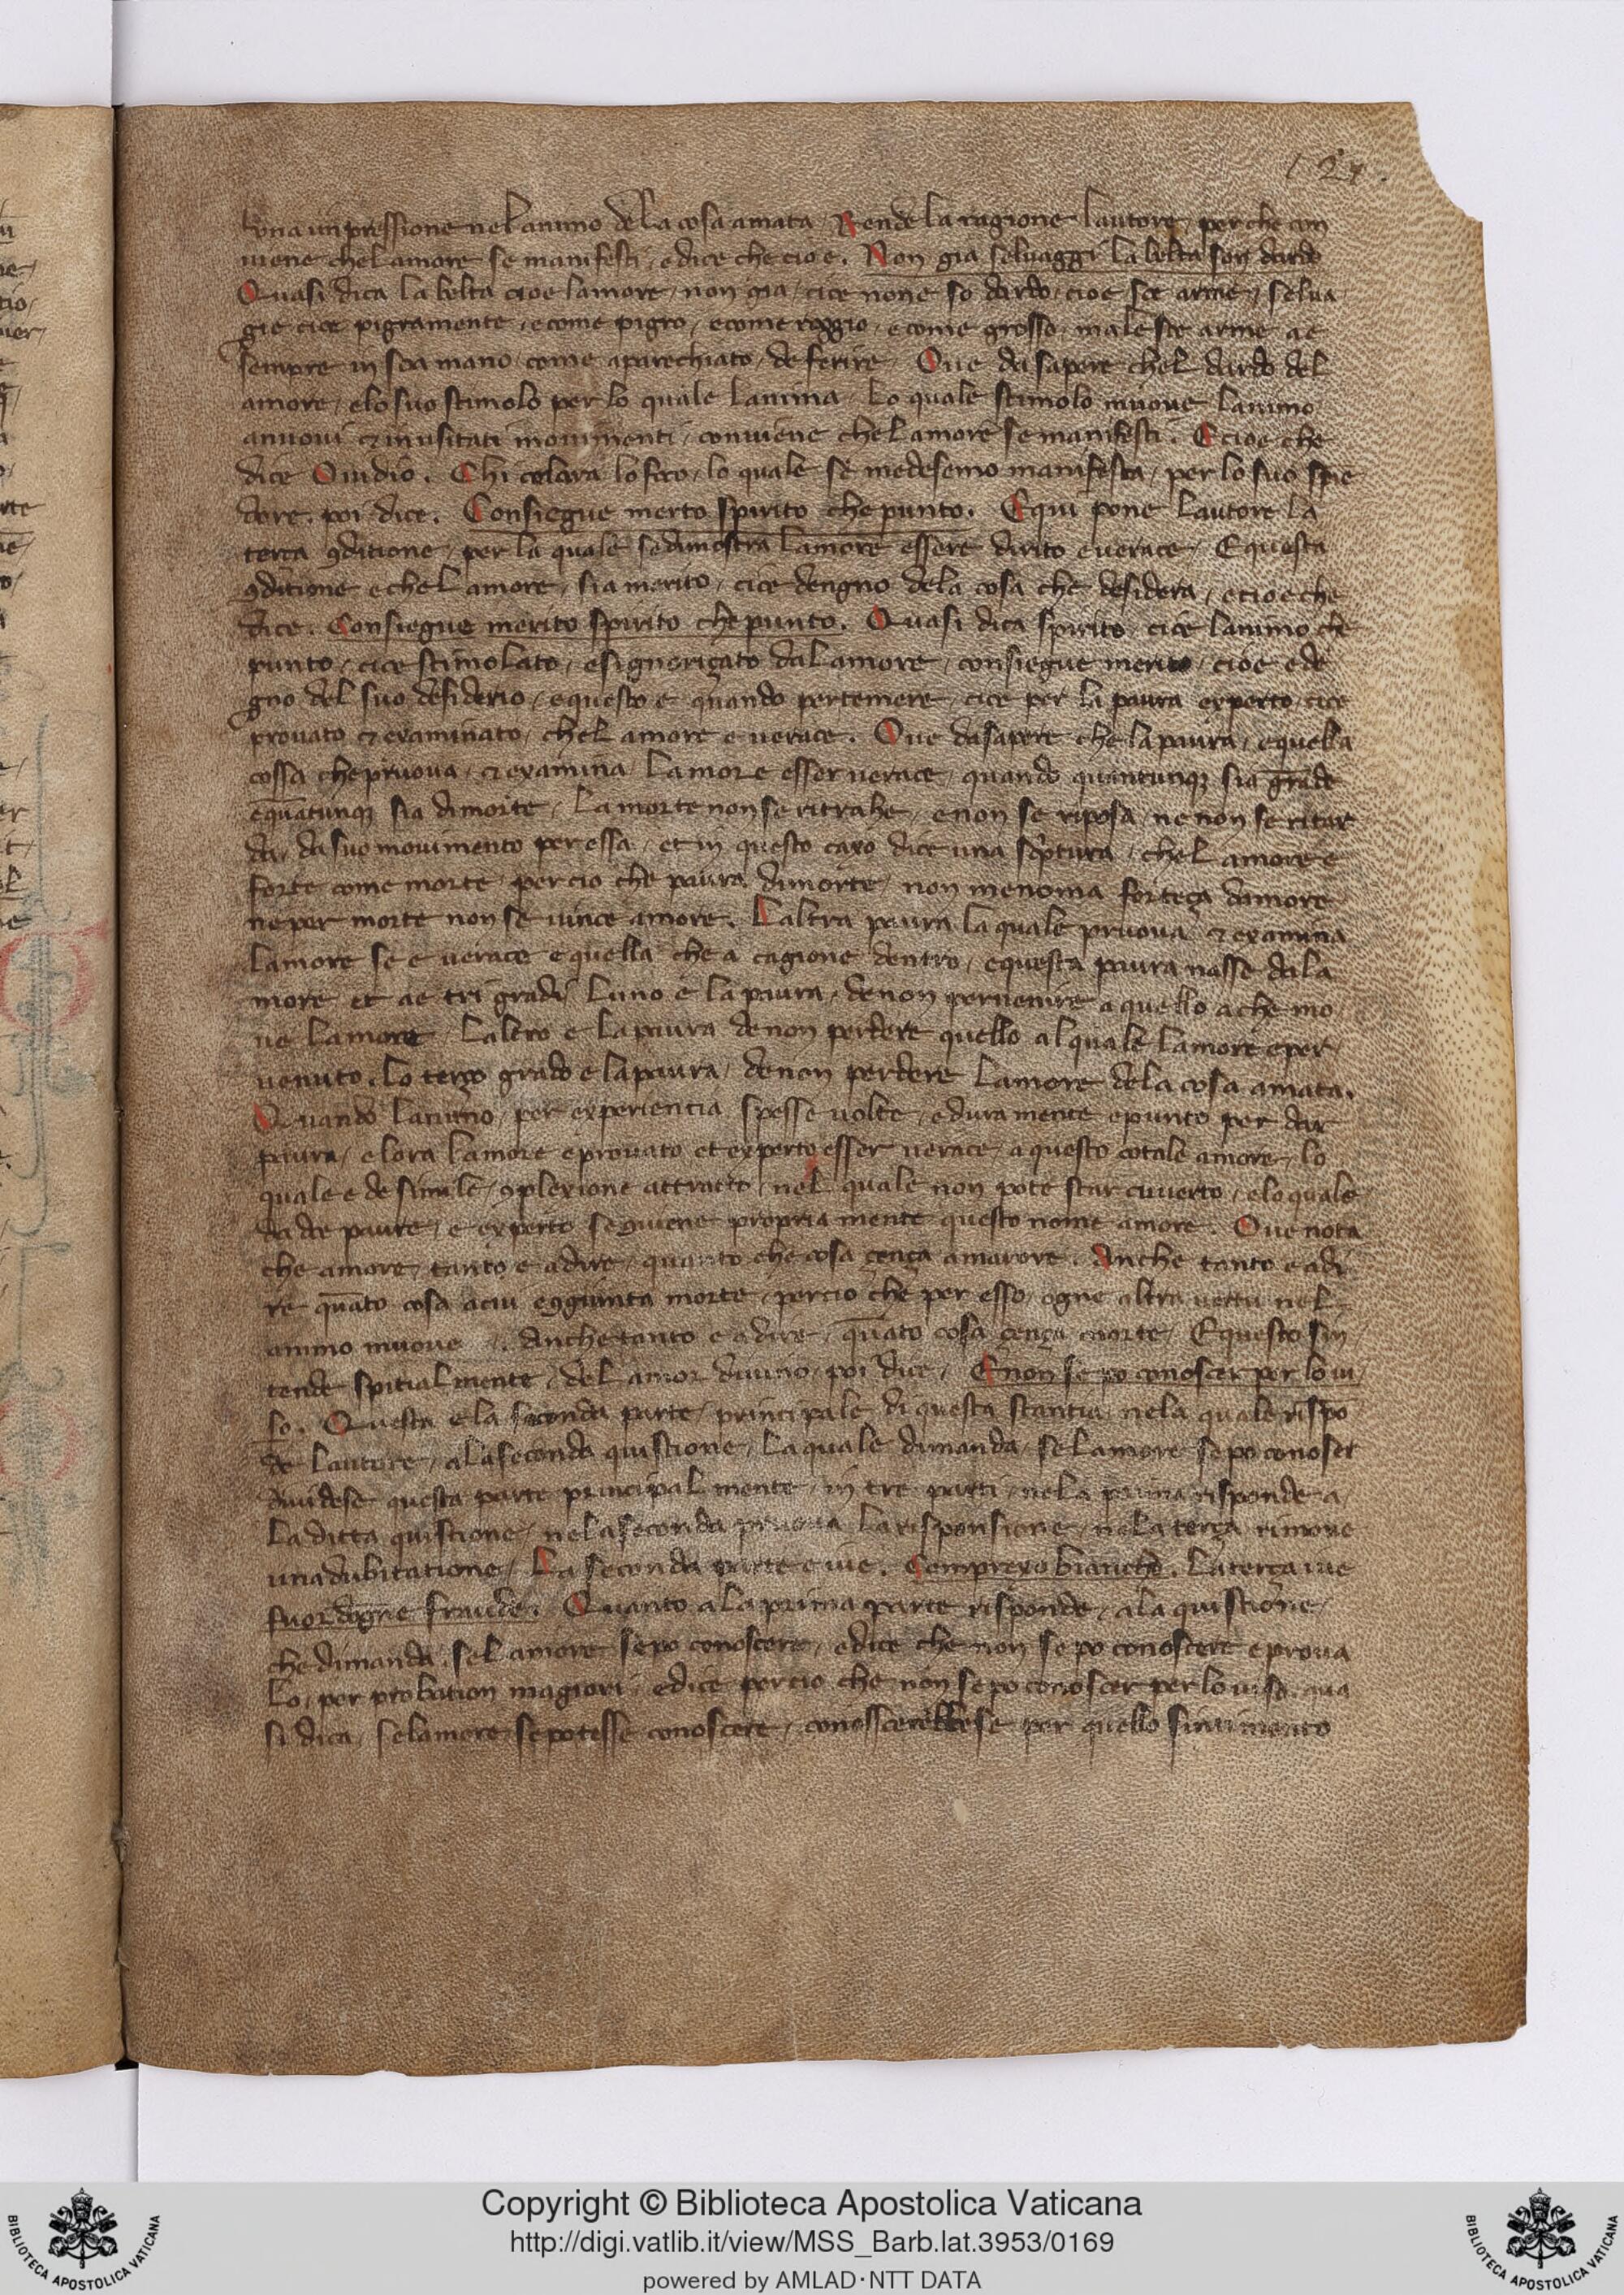 127.
una inpressione nel animo dela cosa amata. Rende la ragione lautore, per che con
viene chel amore se manifesti, e dice che cio e. Non gia selvaggi la belta son dardo
Quasi dica la belta cioe lamore, non gia, cioe none so dardo, cioe soe arme, selva
gie cioe pigramente, e come pigro, e come roggio, e come grosso, male soe arme ae
sempre in soa mano, come aparechiato, de ferire, Ove da sapere chel dardo del
amore, e lo suo stimolo per lo quale lanima, Lo quale stimolo muove lanimo
a nuovi & inusitati movimenti, conviene chel amore se manifesti. E cioe che
dice Ovidio. Chi celara lo foco, lo quale se medesemo manifesta, per lo suo sple
dore. poi dice. Consiegue merto spirito che punto. E qui pone lautore la
terça 9ditione, per la quale se dimostra lamore essere dirito e verace, E questa
9ditione e chel amore, sia merito, cioe dengno dela cosa che desidera, e cio e che
dice. Consiegue merito spirito che punto. Quasi dica spirito, cioe lanimo che
punto, cioe stimolato, e signoriçato dal amore, consiegue merito, cioe e de
gno del suo desiderio, e questo e quando per temere, cioe per la paura experto, cioe
provato & examinato, chel amore e verace. Ove da sapere che la paura, e quella
cossa che pruova, & examina lamore esser verace, quando quantunq; sia grãde
e quãtunq; sia di morte, La morte non se ritrahe, e non se riposa, ne non se ritar
da, da suo movimento per essa, et in questo caxo dice una scptura, chel amore e
forte come morte, per cio che paura di morte, non menoma forteça damore
ne per morte non se vince amore. Laltra paura la quale pruova & examina
lamore se e verace e quella che a cagione dentro, e questa paura nasse dala
more et ae tri gradi, Luno e la paura, de non pervenire a quello a che mo
ve lamore, Laltro e la paura de non perdere quello al quale lamore e per
venuto. Lo terço grado e la paura, de non perdere lamore dela cosa amata.
Quando lanimo, per experiencia spesse volte, e dura mente e punto per dar
paura, e lora lamore e provato et experto esser verace, a questo cotale amore, lo
quale e de simile, 9plexione attracto, nel quale non pote star cuverto, e lo quale
da de paure, e experto se 9viene propria mente questo nome amore. Ove nota
che amore, tanto e a dire, quanto che cosa çença amarore. Anche tanto e a di
re quãto cosa a cui e 9giunta morte, per cio che per esso, ogne altra vertu nel
animo muove. Anche tanto e a dire, quãto cosa çença morte, E questo sin
tende spitialmente, del amor divino, poi dice, E non se po conoscer per lo vi
so. Questa e la seconda parte, principale di questa stantia, nela quale rispõ
de lautore, ala seconda quistione, La quale dimanda, sel amore se po conoscer
dividese questa parte principal mente, in tre parti, nela prima risponde a
la ditta quistione, nela seconda pruova la risponsione, nela terça rimove
una dubitatione, La seconda parte e ive. Compreso bianche. La terça ive
fuor dogne fraude. Quanto ala prima parte risponde, ala quistione
che dimanda, sel amore se po conoscere, e dice che non se po conoscere e prova
lo, per probation magiori, e dice per cio che non se po conoscer per lo viso. qua
si dica, se lamore se potesse conoscere, conosscerebbese per quello sintimento
Copyright © Biblioteca Apostolica Vaticana
http://digi.vatlib.it/view/MSS_Barb.lat.3953/0169
powered by AMLAD·NTT DATA
BIBLIOTECA APOSTOLICA VATICANA
BIBLIOTECA APOSTOLICA VATICANA